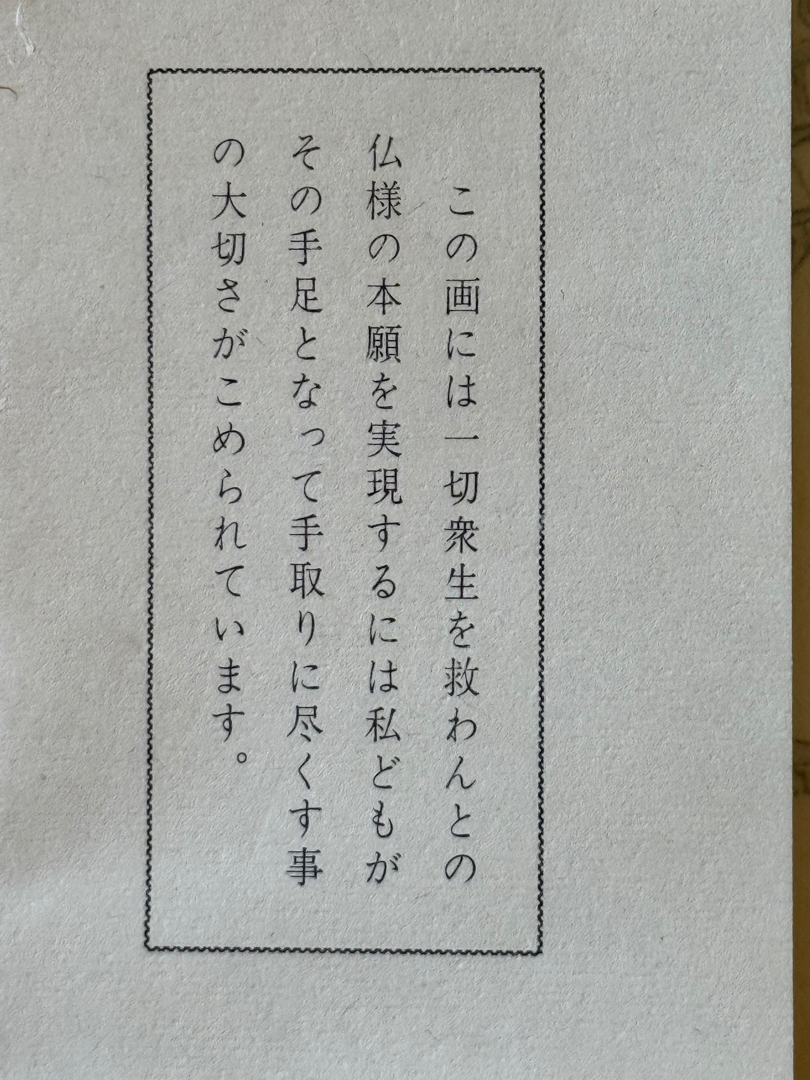 この画には一切衆生を救わんとの
仏様の本願を実現するには私どもが
その手足となって手取りに尽くす事
の大切さがこめられています。